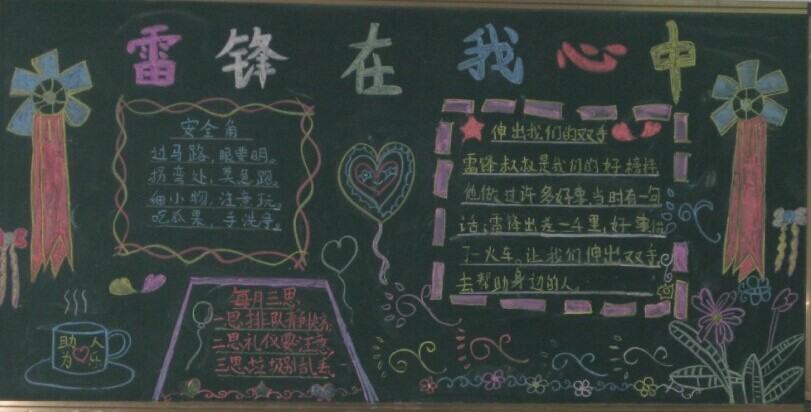 雷锋在我心中
安全角
过马路,眼要明。
拐弯处,莫急跑。
细小物,注意玩。
吃瓜果,手洗净。
伸出我们的双手
雷锋叔叔是我们的好榜样
他做过许多好事,当时有一句
话:雷锋出差一千里,好事做
了一火车,让我们伸出双手,
去帮助身边的人。
每月三思
一思排队齐
二思礼仪要注意
三思垃圾别乱丢
助人
为乐